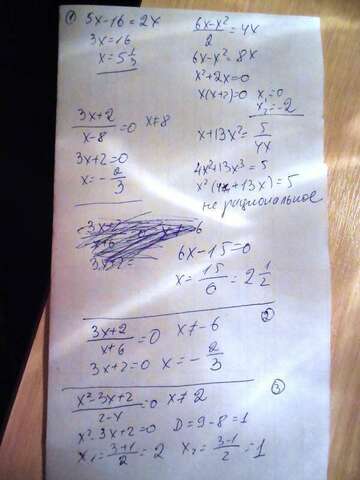 ① 5x-16=2x
3x=16
x=5 1/3
(6x-x²)/2=4x
6x-x²=8x
x²+2x=0
x(x+2)=0 x₁=0
x₂=-2
(3x+2)/(x-8)=0 x≠8
3x+2=0
x=-2/3
x+13x²=5/4x
4x²+13x³=5
x²(4x+13x)=5
не рациональное
6x-15=0
x=15/6=2 1/2
②
(3x+2)/(x+6)=0 x≠-6
3x+2=0 x=-2/3
③
(x²-3x+2)/(2-x)=0 x≠2
x²-3x+2=0 D=9-8=1
x₁=(3+1)/2=2 x₂=(3-1)/2=1